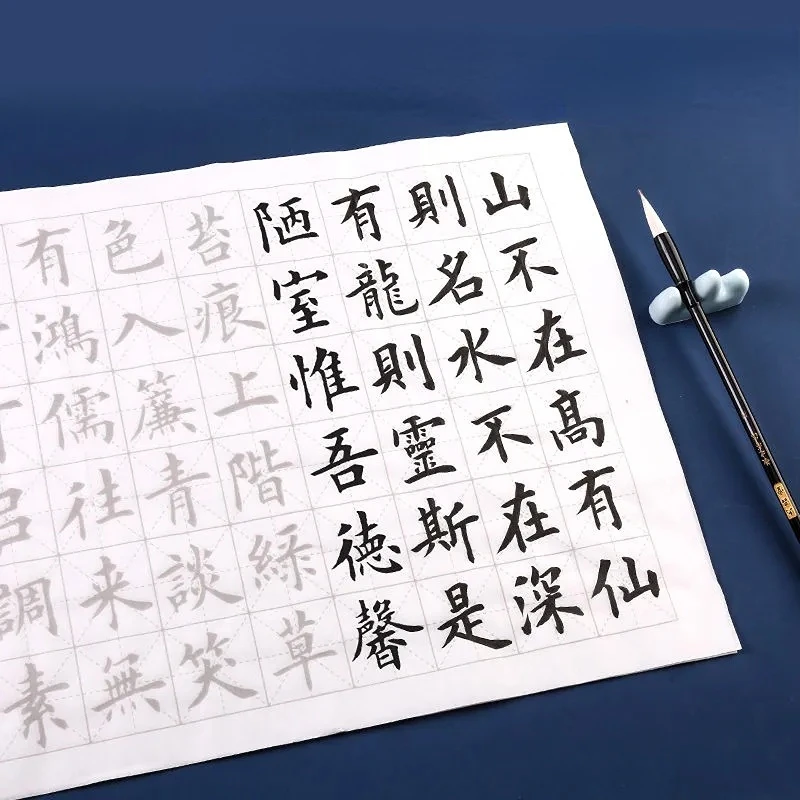 山不在高有仙
則名水不在深
有龍則靈斯是
陋室惟吾德馨
苔痕上階綠草
色入簾青談笑
有鴻儒往来無
調素